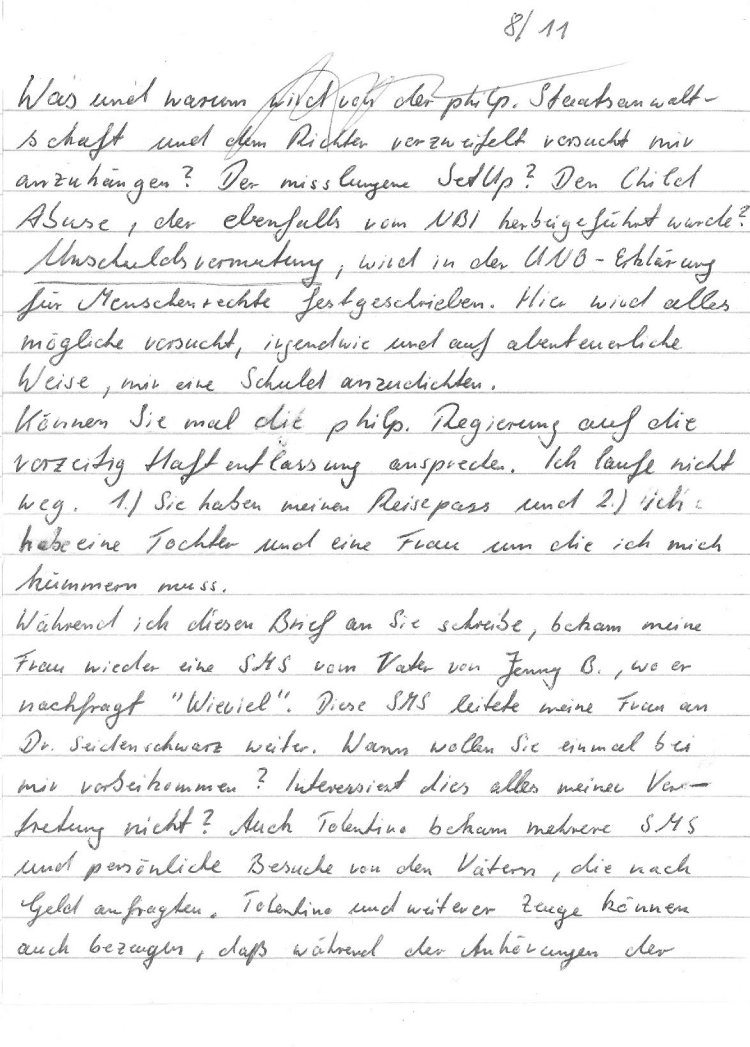 8/11
Was und warum wird von der philp. Staatsanwalt-
schaft und dem Richter verzweifelt versucht mir
anzuhängen? Der misslungene SetUp? Den Child
Abuse, der ebenfalls vom NBI herbeigeführt wurde?
Unschuldsvermutung, wird in der UNO-Erklärung
für Menschenrechte festgeschrieben. Hier wird alles
mögliche versucht, irgendwie und auf abenteuerliche
Weise, mir eine Schuld anzudichten.
Können Sie mal die philp. Regierung auf die
vorzeitig Haftentlassung ansprechen. Ich laufe nicht
weg. 1.) Sie haben meinen Reisepass und 2.) ich
habe eine Tochter und eine Frau um die ich mich
kümmern muss.
Während ich diesen Brief an Sie schreibe, bekam meine
Frau wieder eine SMS vom Vater von Jenny B., wo er
nachfragt "Wieviel". Diese SMS leitete meine Frau an
Dr. Seidenschwarz weiter. Wann wollen Sie einmal bei
mir vorbeikommen? Interessiert dies alles meiner Ver-
tretung nicht? Auch Tolentino bekam mehrere SMS
und persönliche Besuche von den Vätern, die nach
Geld anfragten. Tolentino und weiterer Zeuge können
auch bezeugen, daß während der Anhörungen der